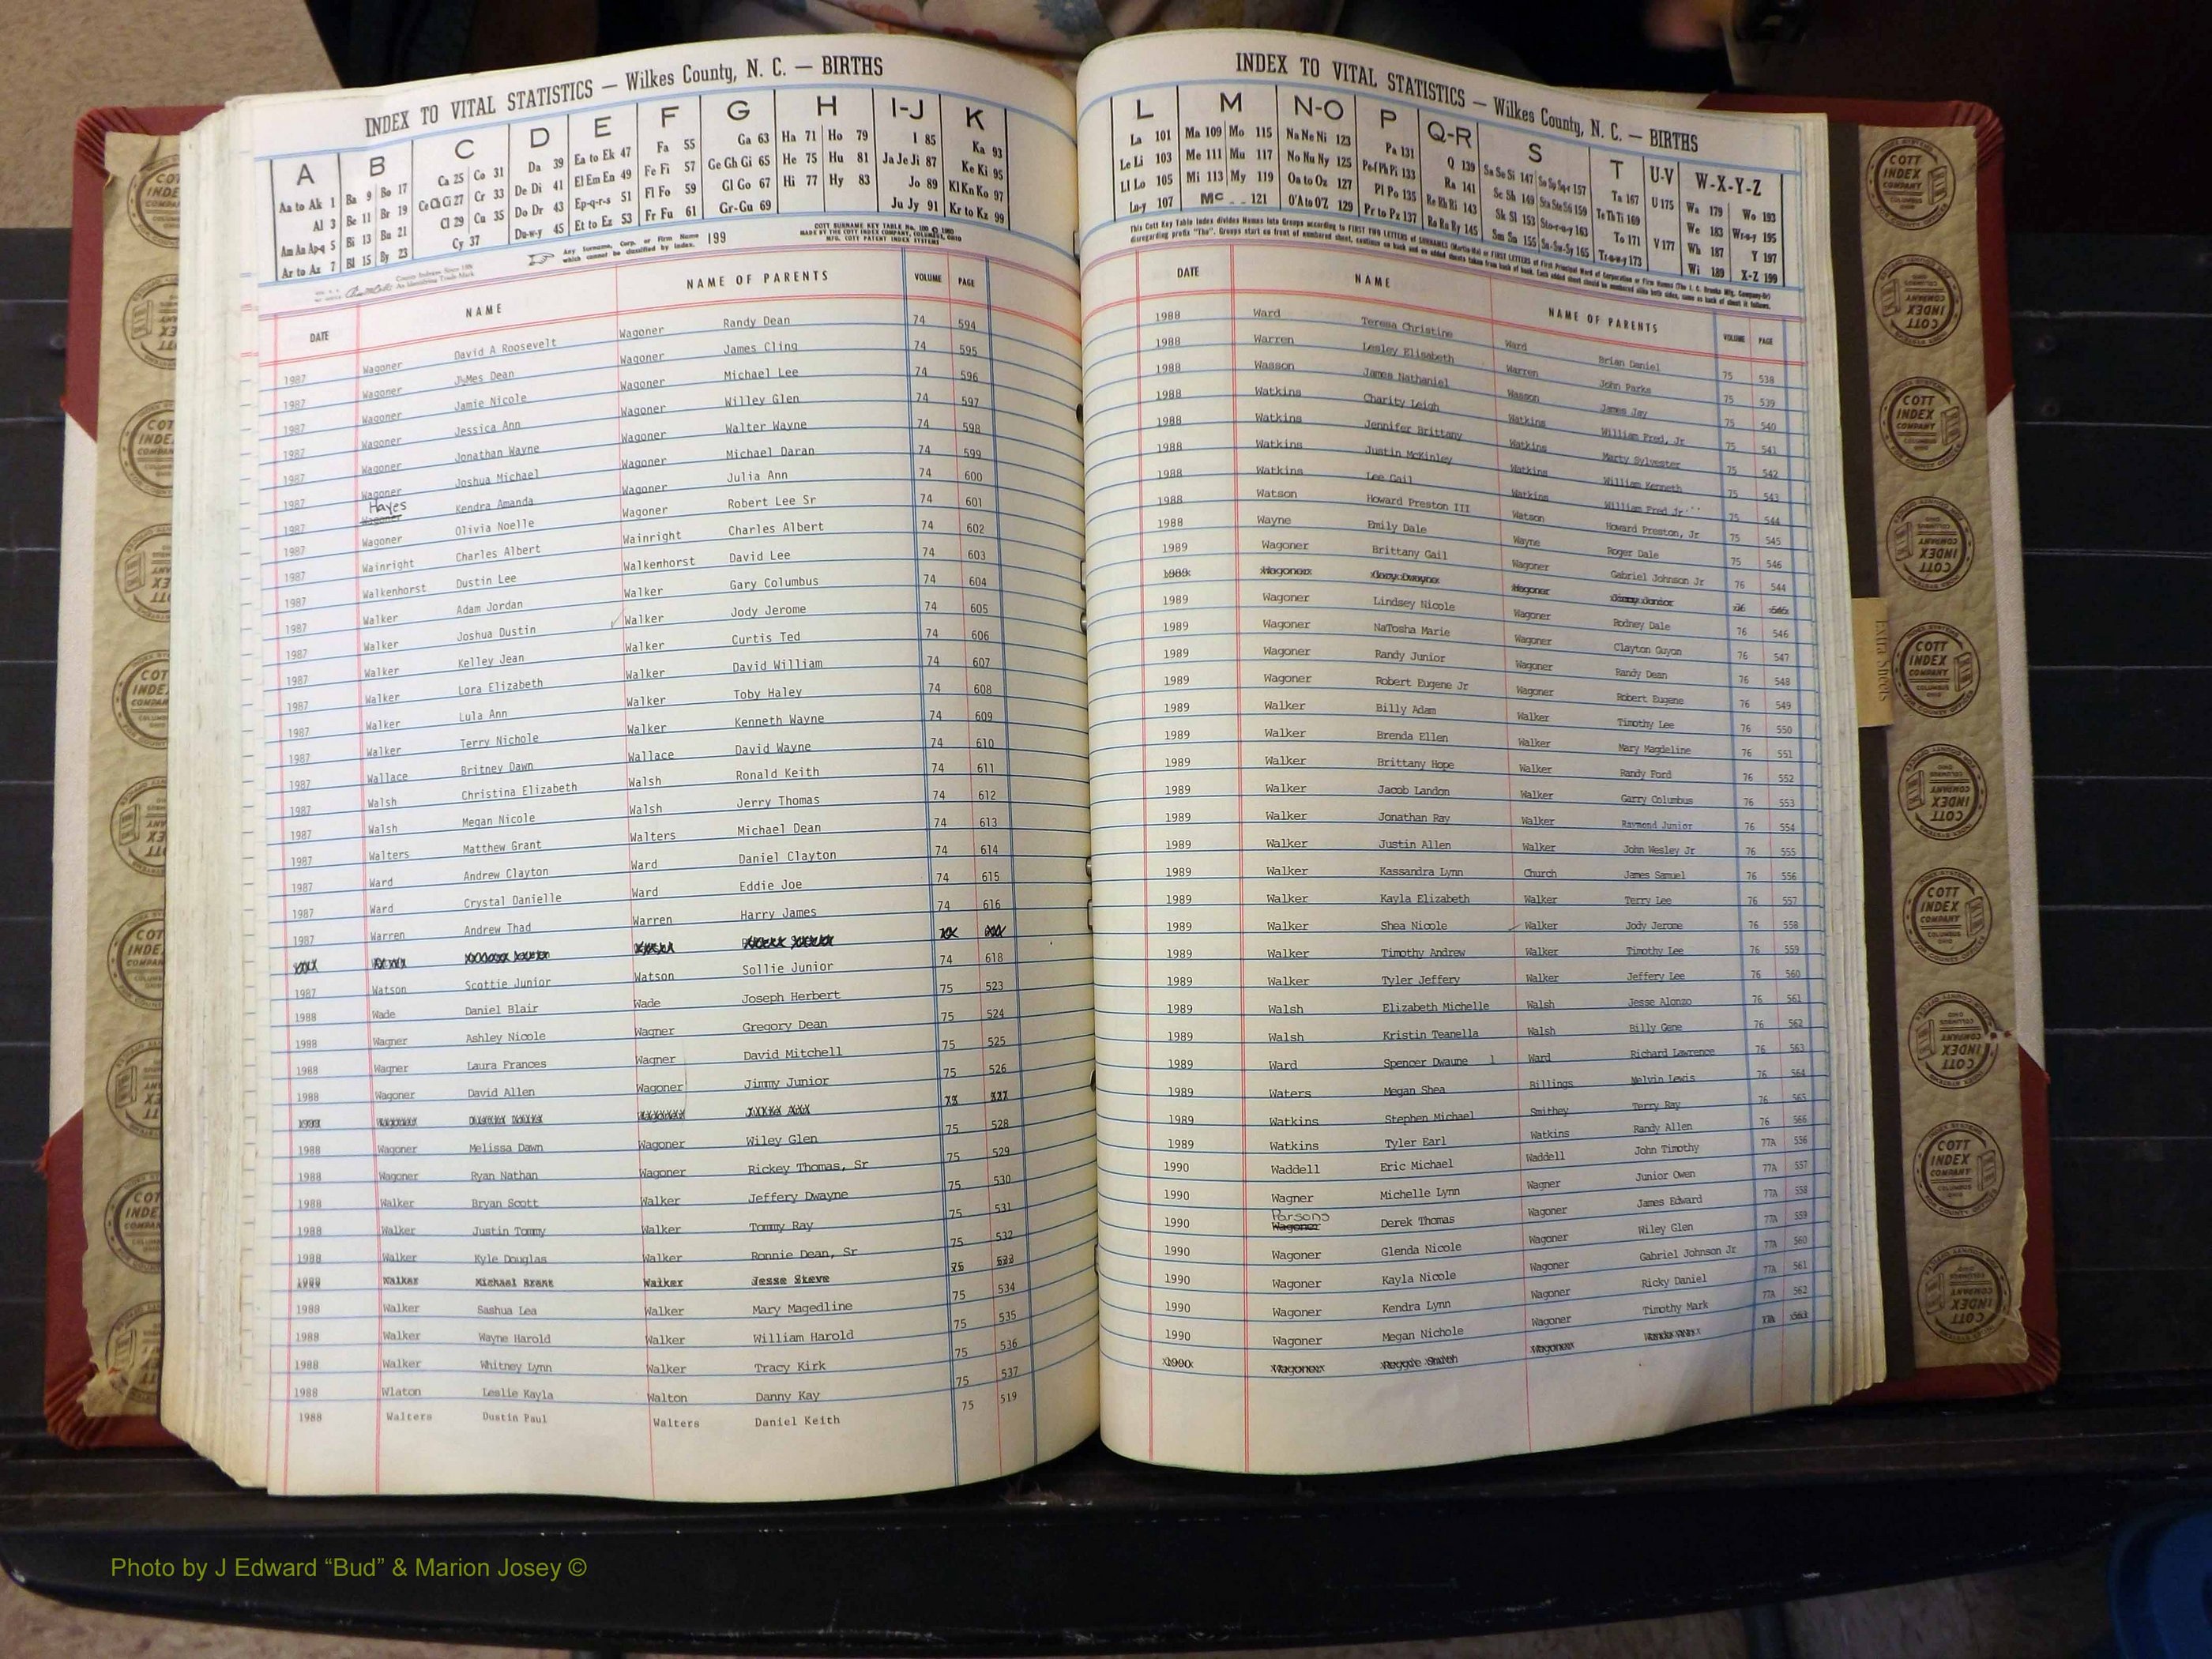 INDEX TO VITAL STATISTICS — Wilkes County, N. C. — BIRTHS
A B C D E F G H I-J K
Aa to Ak 1 Ba 9 Bo 17 Ca 25 Co 31 Da 39 Ea to Ek 47 Fa 55 Ga 63 Ha 71 Ho 79 I 85 Ka 93
Al 3 Be 11 Br 19 Ce Ch Ci 27 Cr 33 De Di 41 El Em En 49 Fe Fi 57 Ge Gh Gi 65 He 75 Hu 81 Ja Je Ji 87 Ke Ki 95
Am An Ap-q 5 Bi 13 Bu 21 Cl 29 Cu 35 Do Dr 43 Ep-q-r-s 51 Fl Fo 59 Gl Go 67 Hi 77 Hy 83 Jo 89 Kl Kn Ko 97
Ar to Az 7 Bl 15 By 23 Cy 37 Du-w-y 45 Et to Ez 53 Fr Fu 61 Gr-Gu 69 Ju Jy 91 Kr to Kz 99
Any Surname, Corp. or Firm Name which cannot be classified by index. 199
COTT SURNAME KEY TABLE No. 100
MADE BY THE COTT INDEX COMPANY, COLUMBUS, OHIO
MFG. COTT PATENT INDEX SYSTEMS
DATE NAME NAME OF PARENTS VOLUME PAGE
1987 Wagoner David A Roosevelt Wagoner Randy Dean 74 594
1987 Wagoner JaMes Dean Wagoner James Cling 74 595
1987 Wagoner Jamie Nicole Wagoner Michael Lee 74 596
1987 Wagoner Jessica Ann Wagoner Willey Glen 74 597
1987 Wagoner Jonathan Wayne Wagoner Walter Wayne 74 598
1987 Wagoner Joshua Michael Wagoner Michael Daran 74 599
Hayes
1987 Wagoner Kendra Amanda Wagoner Julia Ann 74 600
1987 Wagoner Olivia Noelle Wagoner Robert Lee Sr 74 601
1987 Wainright Charles Albert Wainright Charles Albert 74 602
1987 Walkenhorst Dustin Lee Walkenhorst David Lee 74 603
1987 Walker Adam Jordan Walker Gary Columbus 74 604
1987 Walker Joshua Dustin Walker Jody Jerome 74 605
1987 Walker Kelley Jean Walker Curtis Ted 74 606
1987 Walker Lora Elizabeth Walker David William 74 607
1987 Walker Lula Ann Walker Toby Haley 74 608
1987 Walker Terry Nichole Walker Kenneth Wayne 74 609
1987 Wallace Britney Dawn Wallace David Wayne 74 610
1987 Walsh Christina Elizabeth Walsh Ronald Keith 74 611
1987 Walsh Megan Nicole Walsh Jerry Thomas 74 612
1987 Walters Matthew Grant Walters Michael Dean 74 613
1987 Ward Andrew Clayton Ward Daniel Clayton 74 614
1987 Ward Crystal Danielle Ward Eddie Joe 74 615
1987 Warren Andrew Thad Warren Harry James 74 616
1987 Watson Scottie Junior Watson Sollie Junior 74 618
1988 Wade Daniel Blair Wade Joseph Herbert 75 523
1988 Wagner Ashley Nicole Wagner Gregory Dean 75 524
1988 Wagner Laura Frances Wagner David Mitchell 75 525
1988 Wagoner David Allen Wagoner Jimmy Junior 75 526
1988 Wagoner Melissa Dawn Wagoner Wiley Glen 75 528
1988 Wagoner Ryan Nathan Wagoner Rickey Thomas, Sr 75 529
1988 Walker Bryan Scott Walker Jeffery Dwayne 75 530
1988 Walker Justin Tommy Walker Tommy Ray 75 531
1988 Walker Kyle Douglas Walker Ronnie Dean, Sr 75 532
Walker Michael Brent Walker Jesse Steve 75 533
1988 Walker Sashua Lea Walker Mary Magedline 75 534
1988 Walker Wayne Harold Walker William Harold 75 535
1988 Walker Whitney Lynn Walker Tracy Kirk 75 536
1988 Wlaton Leslie Kayla Walton Danny Kay 75 537
1988 Walters Dustin Paul Walters Daniel Keith 75 519
INDEX TO VITAL STATISTICS — Wilkes County, N. C. — BIRTHS
L M N-O P Q-R S T U-V W-X-Y-Z
La 101 Ma 109 Mo 115 Na Ne Ni 123 Pa 131 Q 139 Sa Se Si 147 157 Ta 167 U 175 Wa 179 Wo 193
Le Li 103 Me 111 Mu 117 No Nu Ny 125 Pe-f Ph Pi 133 Ra 141 Sc Sh 149 159 Te Th Ti 169 We 183 Wr-u-y 195
Ll Lo 105 Mi 113 My 119 Oa to Oz 127 Pl Po 135 Re Rh Ri 143 Sk Sl 153 Sto-r-u-y 163 To 171 V 177 Wh 187 Y 197
Lu-y 107 Mc 121 O'A to O'Z 129 Pr to Pz 137 Ro Ru Ry 145 Sm Sn 155 Su-Sw-Sy 165 Tr-u-w-y 173 Wi 189 X-Z 199
This Cott Key Table Index divides Names into Groups according to FIRST TWO LETTERS of SURNAMES
DATE NAME NAME OF PARENTS VOLUME PAGE
1988 Ward Teresa Christine Ward Brian Daniel 75 538
1988 Warren Lesley Elisabeth Warren John Parks 75 539
1988 Wasson James Nathaniel Wasson James Jay 75 540
1988 Watkins Charity Leigh Watkins William Fred, Jr 75 541
1988 Watkins Jennifer Brittany Watkins Marty Sylvester 75 542
1988 Watkins Justin McKinley Watkins William Kenneth 75 543
1988 Watkins Lee Gail Watkins William Fred Jr 75 544
1988 Watson Howard Preston III Watson Howard Preston, Jr 75 545
1988 Wayne Emily Dale Wayne Roger Dale 75 546
1989 Wagoner Brittany Gail Wagoner Gabriel Johnson Jr 76 544
1989 Wagoner Dwayne Wagoner Jimmy Junior
1989 Wagoner Lindsey Nicole Wagoner Rodney Dale 76 546
1989 Wagoner NaTosha Marie Wagoner Clayton Guyon 76 547
1989 Wagoner Randy Junior Wagoner Randy Dean 76 548
1989 Wagoner Robert Eugene Jr Wagoner Robert Eugene 76 549
1989 Walker Billy Adam Walker Timothy Lee 76 550
1989 Walker Brenda Ellen Walker Mary Magdeline 76 551
1989 Walker Brittany Hope Walker Randy Ford 76 552
1989 Walker Jacob Landon Walker Garry Columbus 76 553
1989 Walker Jonathan Ray Walker Raymond Junior 76 554
1989 Walker Justin Allen Walker John Wesley Jr 76 555
1989 Walker Kassandra Lynn Church James Samuel 76 556
1989 Walker Kayla Elizabeth Walker Terry Lee 76 557
1989 Walker Shea Nicole Walker Jody Jerome 76 558
1989 Walker Timothy Andrew Walker Timothy Lee 76 559
1989 Walker Tyler Jeffery Walker Jeffery Lee 76 560
1989 Walsh Elizabeth Michelle Walsh Jesse Alonzo 76 561
1989 Walsh Kristin Teanella Walsh Billy Gene 76 562
1989 Ward Spencer Dwaune 1 Ward Richard Lawrence 76 563
1989 Waters Megan Shea Billings Melvin Lewis 76 564
1989 Watkins Stephen Michael Smithey Terry Ray 76 565
1989 Watkins Tyler Earl Watkins Randy Allen 76 566
1990 Waddell Eric Michael Waddell John Timothy 77A 556
1990 Wagner Michelle Lynn Wagner Junior Owen 77A 557
Parsons
1990 Wagoner Derek Thomas Wagoner James Edward 77A 558
1990 Wagoner Glenda Nicole Wagoner Wiley Glen 77A 559
1990 Wagoner Kayla Nicole Wagoner Gabriel Johnson Jr 77A 560
1990 Wagoner Kendra Lynn Wagoner Ricky Daniel 77A 561
1990 Wagoner Megan Nichole Wagoner Timothy Mark 77A 562
1990 Wagoner Wagoner 77A 563
Extra Sheets
COTT INDEX COMPANY COLUMBUS OHIO
Photo by J Edward “Bud” & Marion Josey ©